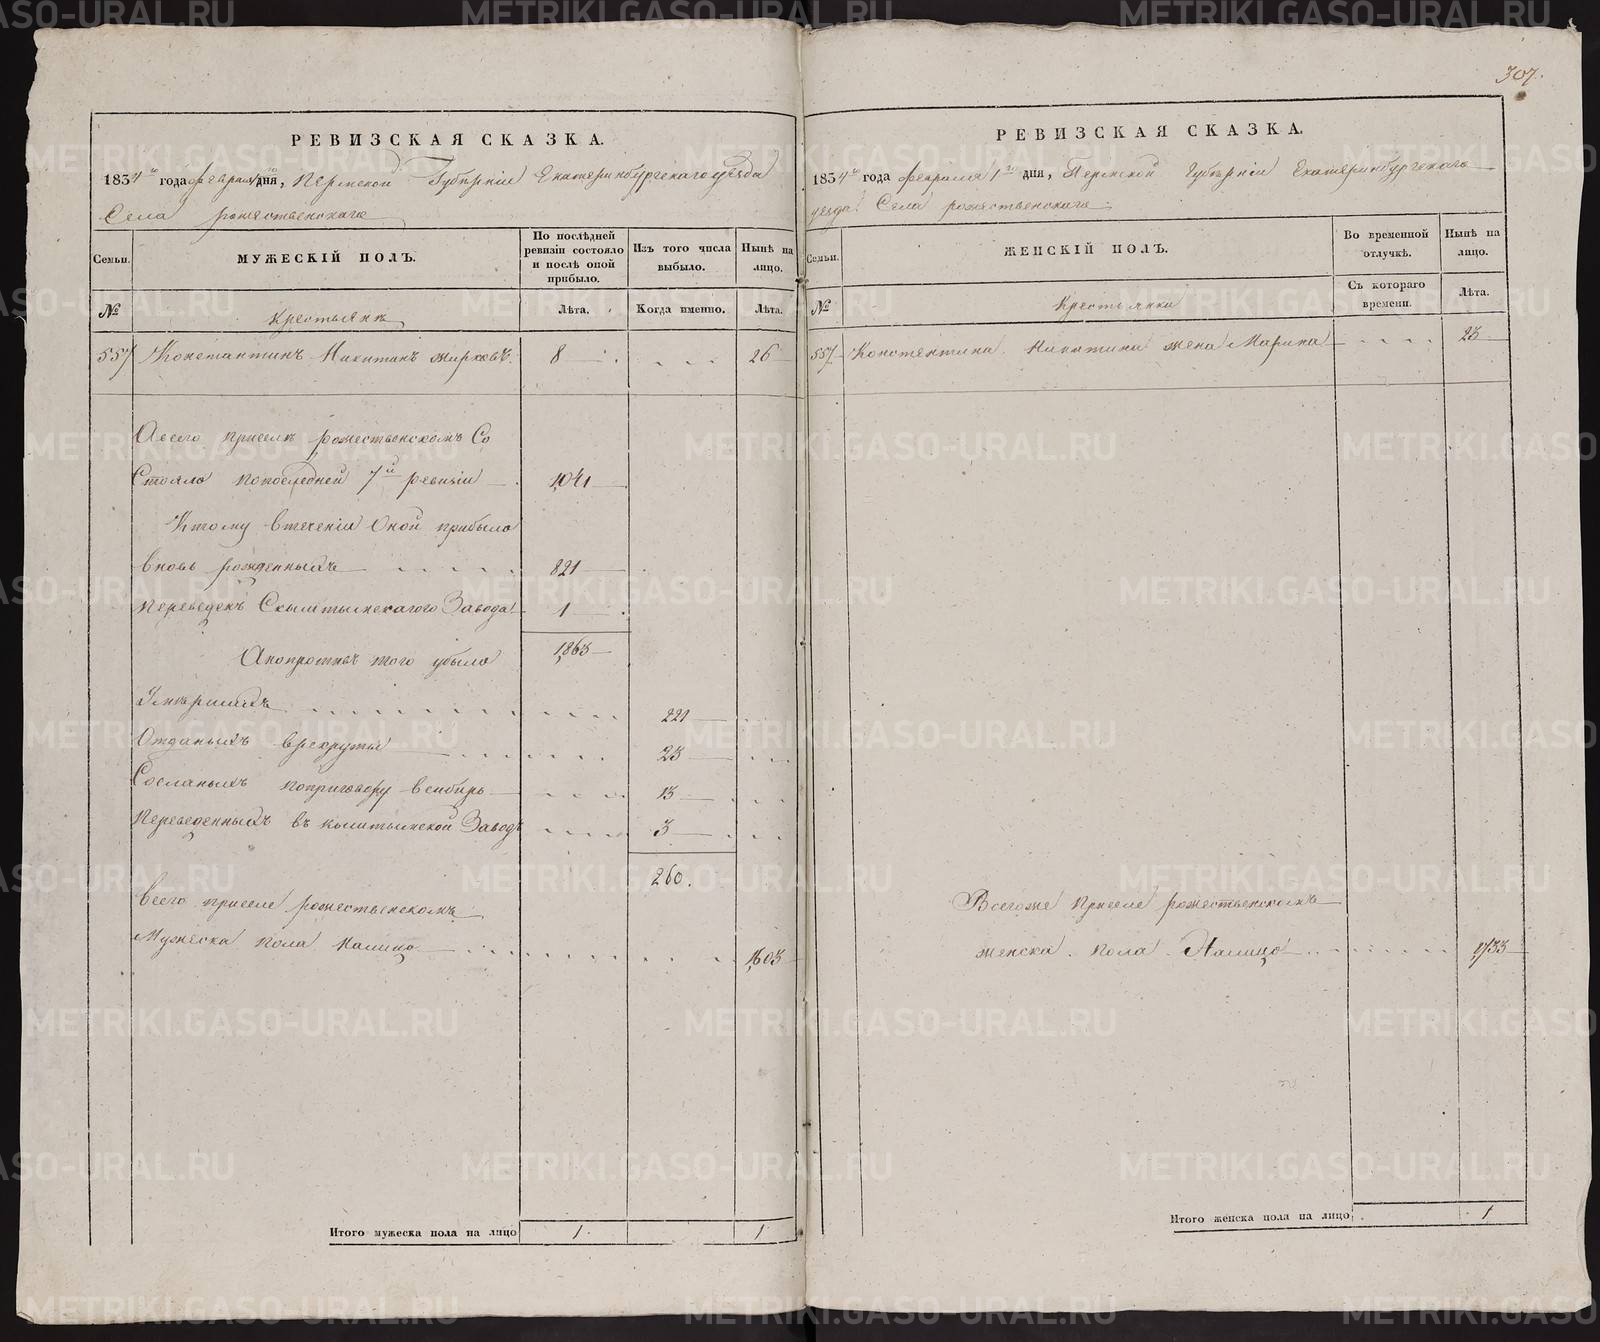 307.
РЕВИЗСКАЯ СКАЗКА.
1834го года февраля 1 дня, Пермской Губерніи Екатеринбургскаго уезда
Села рожественскаго
Семьи.
МУЖЕСКІЙ ПОЛЪ.
По послѣдней ревизіи состояло и послѣ оной прибыло.
Изъ того числа выбыло.
Нынѣ на лицо.
№
Крестьянъ
Лѣта.
Когда именно.
Лѣта.
557 Константинъ Никитинъ 8 26
Авсего приселѣ рожественскомъ Со
Стояло попоследней 7й ревизіи 1041
Ктому втеченіи Оной прибыло
вновь рожденныхъ 821
Переведенъ Завода 1
1863
Анопротивъ того убыло
Умершихъ 221
Отданыхъ врекруты 23
Сосланыхъ поприговору всибирь 13
Переведенныхъ въ Заводъ 3
260.
Всего приселе рожественскомъ
Мужеска пола Налицо 1603
Итого мужеска пола на лицо 1 1
РЕВИЗСКАЯ СКАЗКА.
1834го года февраля 1го дня, Пермской Губерніи Екатеринбургскаго
уезда Села рожественскаго
Семьи.
ЖЕНСКІЙ ПОЛЪ.
Во временной отлучкѣ.
Нынѣ на лицо.
№
Крестьянки
Съ котораго времени.
Лѣта.
557 Константина Никитина жена Марина 23
Всегоже приселе рожественскомъ
женска пола Налицо 1733
Итого женска пола на лицо 1
METRIKI.GASO-URAL.RU